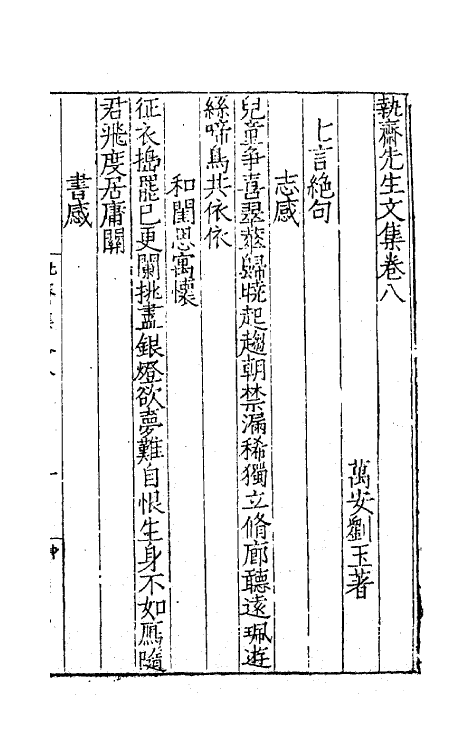 執齋先生文集卷八
萬安劉玉著
七言絶句
志感
兒童爭喜翠華歸曉起趨朝禁漏稀獨立脩廊聽遠珮遊
絲啼鳥共依依
和閨思寓懷
征衣搗罷已更闌挑盡銀燈欲夢難自恨生身不如鴈隨
君飛度居庸關
書感